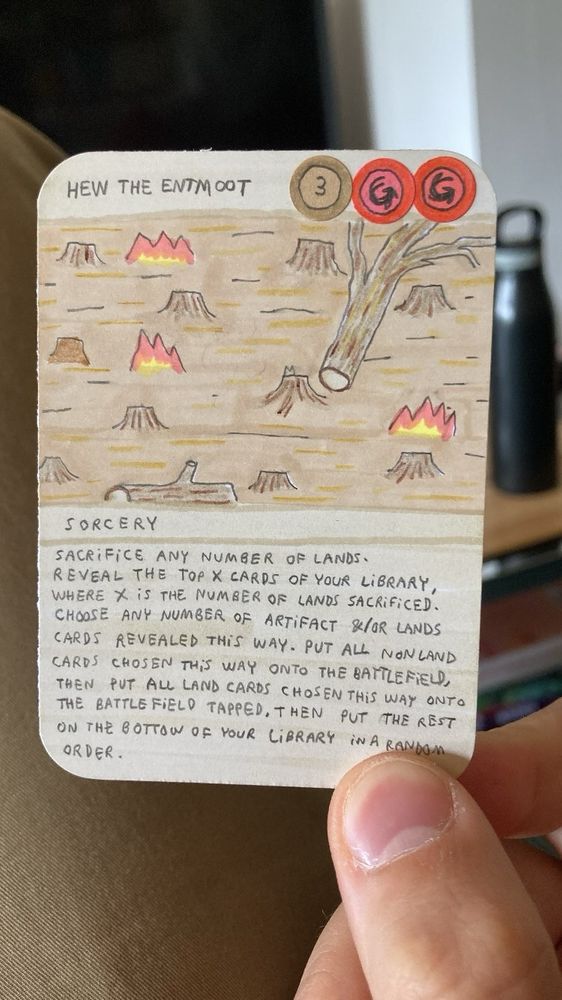 HEW THE ENTMOOT
3
SORCERY
SACRIFICE ANY NUMBER OF LANDS.
REVEAL THE TOP X CARDS OF YOUR LIBRARY,
WHERE X IS THE NUMBER OF LANDS SACRIFICED.
CHOOSE ANY NUMBER OF ARTIFACT &/OR LANDS
CARDS REVEALED THIS WAY. PUT ALL NONLAND
CARDS CHOSEN THIS WAY ONTO THE BATTLEFIELD,
THEN PUT ALL LAND CARDS CHOSEN THIS WAY ONTO
THE BATTLEFIELD TAPPED. THEN PUT THE REST
ON THE BOTTOM OF YOUR LIBRARY IN A RANDOM
ORDER.